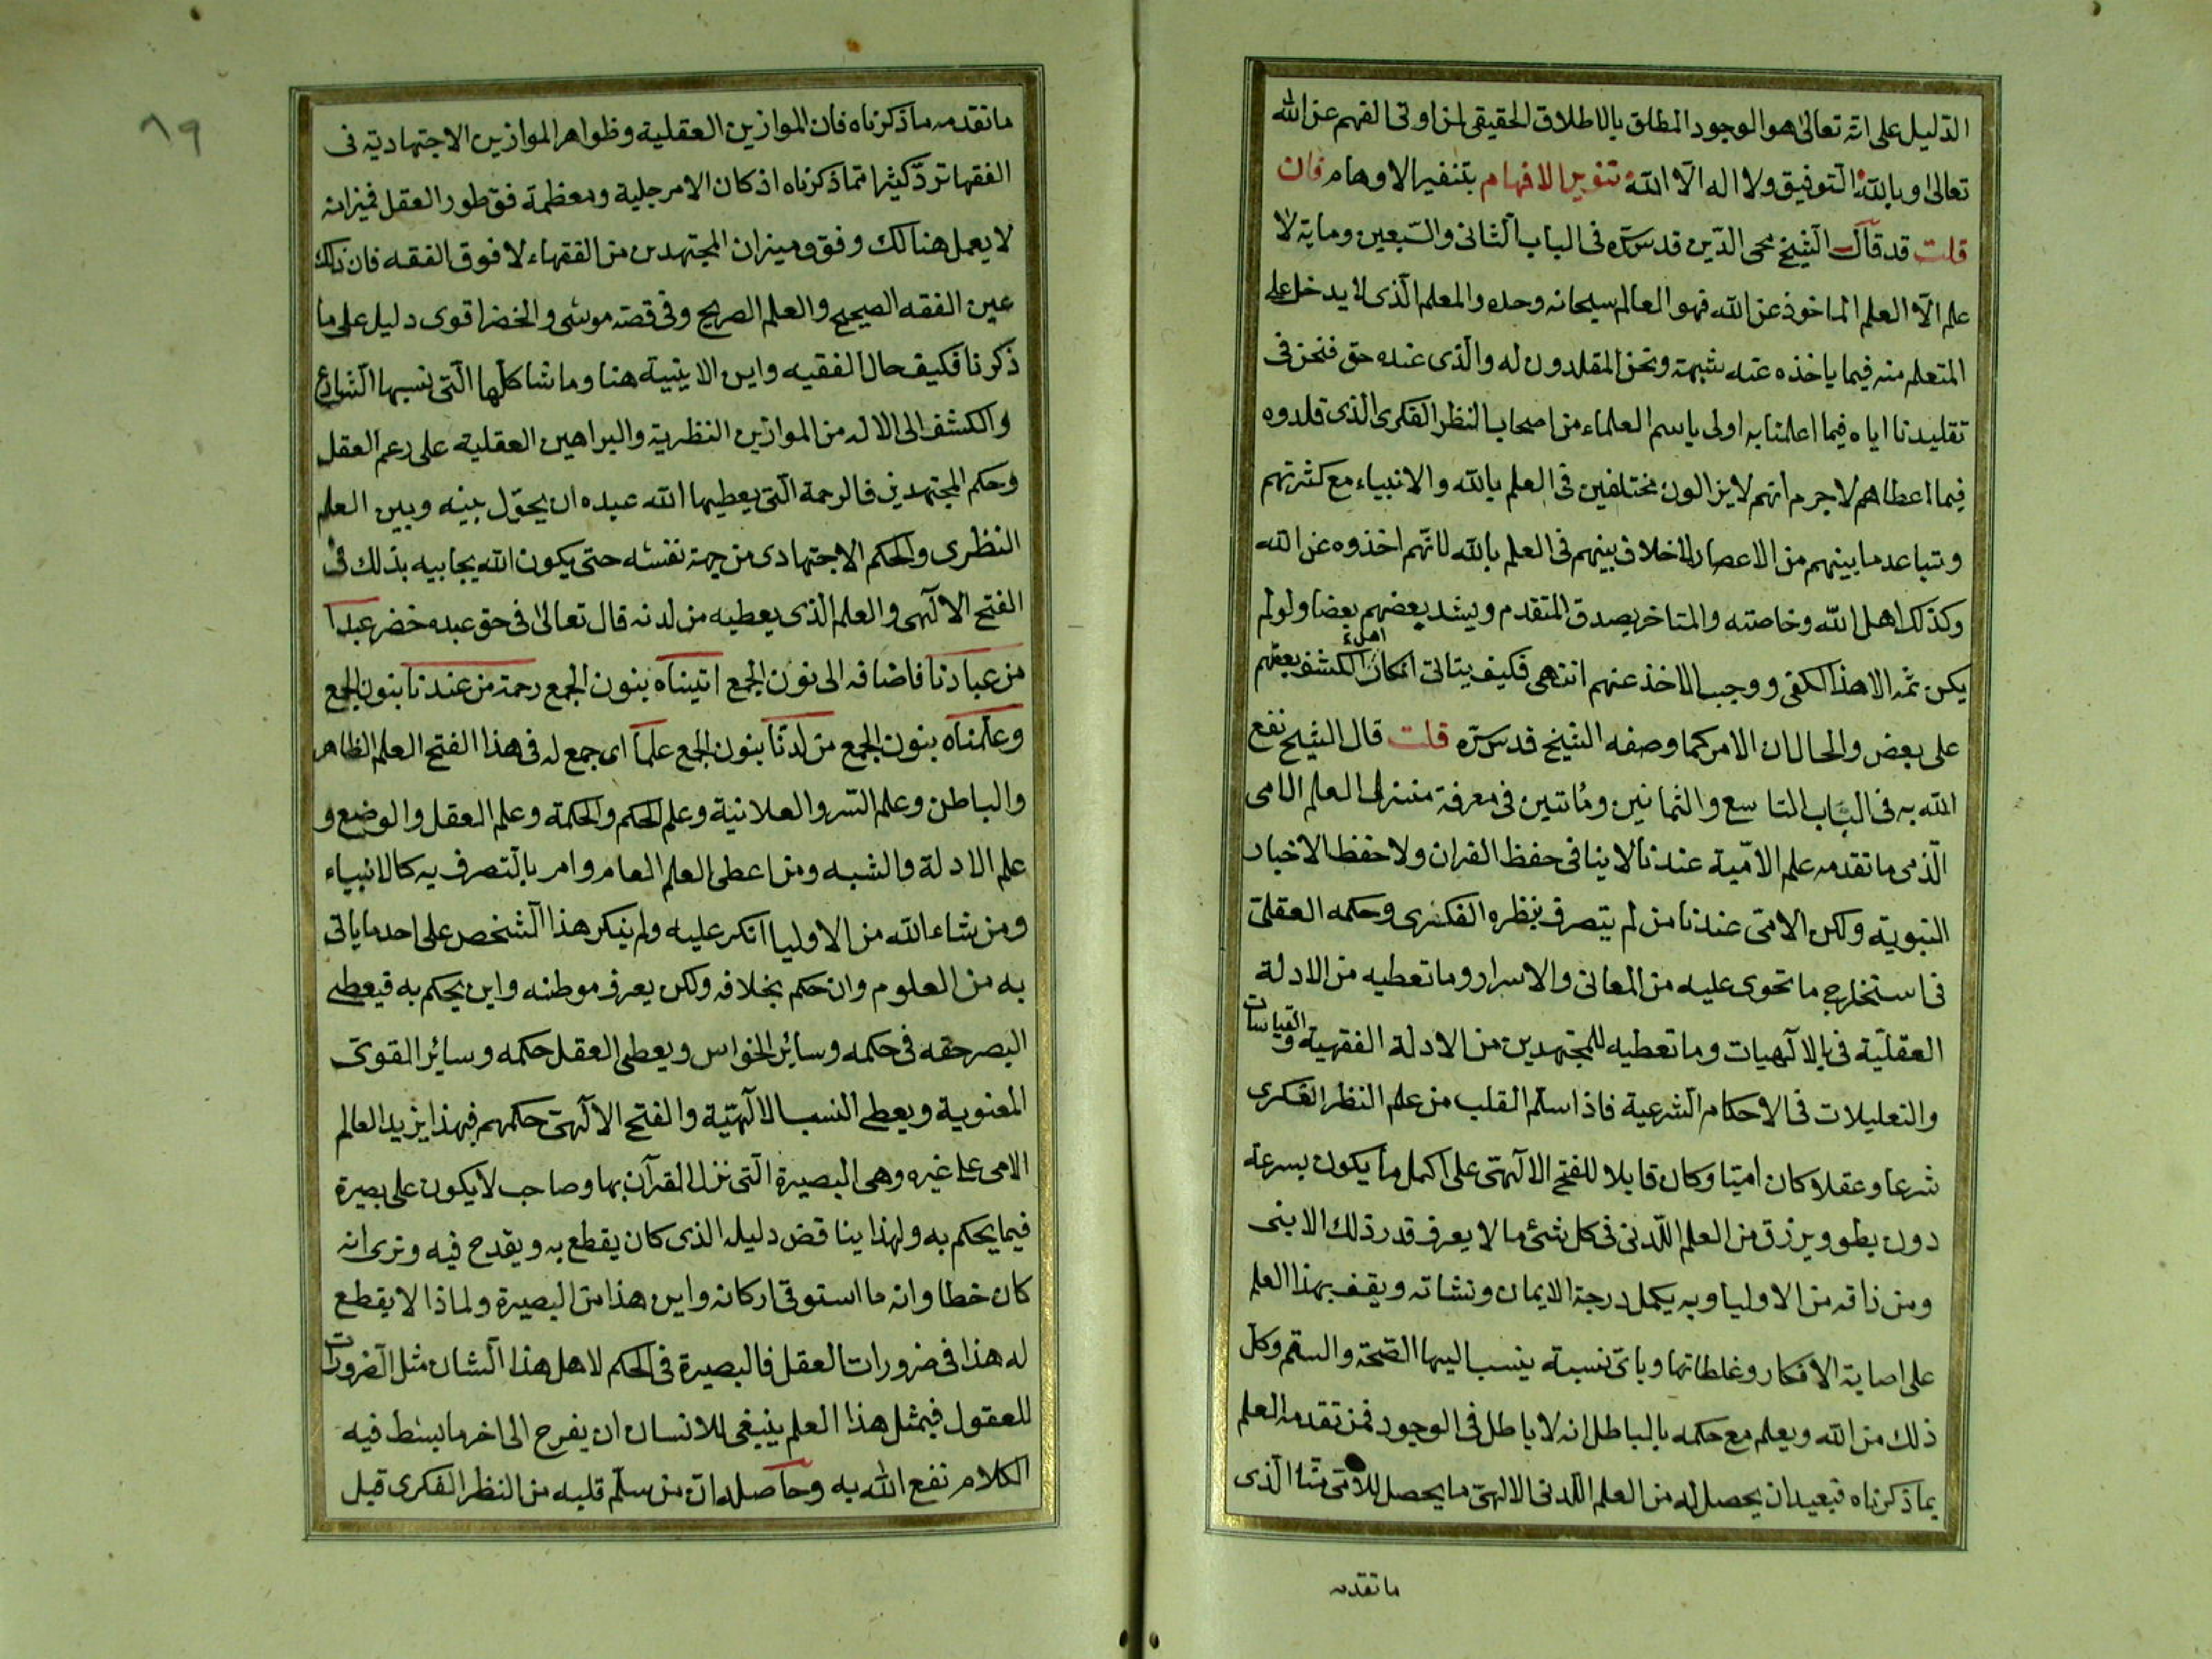 الدليل على انه تعالى هو الوجود المطلق بالاطلاق الحقيقى لمن اوتى الفهم عن الله
تعالى وبالله التوفيق ولا اله الا الله تنوير الافهام بتنفير الاوهام فان
قلت قد قال الشيخ محى الدين قدس سره فى الباب الثانى والسبعين وماية لا
علم الا العلم الماخوذ عن الله فهو العالم سبحانه وحده والمعلم الذى لا يدخل على
المتعلم منه فيما ياخذه عنه شبهة ونحن المقلدون له والذى عنده حق فنحن فى
تقليدنا اياه فيما اعلمنا به اولى باسم العلماء من اصحاب النظر الفكرى الذى قلدوه
فيما اعطاهم لا جرم انهم لا يزالون مختلفين فى العلم بالله والانبياء مع كثرتهم
وتباعد ما بينهم من الاعصار لا خلاف بينهم فى العلم بالله لانهم اخذوه عن الله
وكذلك اهل الله وخاصته والمتاخر يصدق المتقدم ويشد بعضهم بعضا ولو لم
يكن ثمه الا هذا لكفى ووجب الاخذ عنهم انتهى فكيف يتاتى انكار اهل الكشف بعضهم
على بعض والحال ان الامر كما وصفه الشيخ قدس سره قلت قال الشيخ نفع
الله به فى الباب التاسع والثمانين ومائتين فى معرفة منزل العلم الامى
الذى ما تقدمه علم الامية عندنا لا ينافى حفظ القران ولا حفظ الاخبار
النبوية ولكن الامى عندنا من لم يتصرف بنظره الفكرى وحكمه العقلى
فى استخراج ما تحوى عليه من المعانى والاسرار وما تعطيه من الادلة
العقلية فى الالهيات وما تعطيه للمجتهدين من الادلة الفقهية والقياسات
والتعليلات فى الاحكام الشرعية فاذا سلم القلب من علم النظر الفكرى
شرعا وعقلا كان اميا وكان قابلا للفتح الالهى على اكمل ما يكون بسرعة
دون بطو ويرزق من العلم اللدنى فى كل شئ ما لا يعرف قدر ذلك الا نبى
ومن ذاقه من الاوليا وبه يكمل درجة الايمان ونشاته ويقف بهذا العلم
على اصابة الافكار وغلطاتها وباى نسبة ينسب اليها الصحة والسقم وكل
ذلك من الله ويعلم مع حكمه بالباطل انه لا باطل فى الوجود فمن تقدمه العلم
بما ذكرناه فبعيد ان يحصل له من العلم اللدنى الالهى ما يحصل للامى منا الذى
ما تقدمه
٨٩
ما تقدمه ما ذكرناه فان الموازين العقلية وظواهر الموازين الاجتهادية فى
الفقها ترد كثيرا مما ذكرناه اذ كان الامر جلية ومعظمة فوق طور العقل فميزانه
لا يعمل هنالك وفوق ميزان المجتهدين من الفقهاء لا فوق الفقه فان ذلك
عين الفقه الصحيح والعلم الصريح وفى قصة موسى والخضر اقوى دليل على ما
ذكرنا فكيف حال الفقيه واين الاينية هنا وما شاكلها التى نسبها الشارع
والكشف الى الاله من الموازين النظرية والبراهين العقلية على زعم العقل
وحكم المجتهدين فالرحمة التى يعطيها الله عبده ان يحول بينه وبين العلم
النظرى والحكم الاجتهادى من جهة نفسه حتى يكون الله يحابيه بذلك فى
الفتح الالهى والعلم الذى يعطيه من لدنه قال تعالى فى حق عبده خضر عبدا
من عبادنا فاضافه الى نون الجمع اتيناه بنون الجمع رحمة من عندنا بنون الجمع
وعلمناه بنون الجمع من لدنا بنون الجمع علما اى جمع له فى هذا الفتح العلم الظاهر
والباطن وعلم السر والعلانية وعلم الحكم والحكمة وعلم العقل والوضع و
علم الادلة والشبه ومن اعطى العلم العام وامر بالتصرف به كالانبياء
ومن شاء الله من الاوليا انكر عليه ولم ينكر هذا الشخص على احد ما ياتى
به من العلوم وان حكم بخلافه ولكن يعرف موطنه واين يحكم به فيعطى
البصر حقه فى حكمه وسائر الحواس ويعطى العقل حكمه وسائر القوى
المعنوية ويعطى النسب الالهية والفتح الالهى حكمهم فبهذا يزيد العالم
الامى على غيره وهى البصيرة التى نزل القرآن بها وصاحب لا يكون على بصيرة
فيما يحكم به ولهذا يناقض دليله الذى كان يقطع به ويقدح فيه ونرى انه
كان خطا وانه ما استوفى اركانه واين هذا من البصيرة ولماذا لا يقطع
له هذا فى ضرورات العقل فالبصيرة فى الحكم لاهل هذا الشان مثل الضرورات
للعقول فبمثل هذا العلم ينبغى للانسان ان يفرح الى اخر ما بسط فيه
الكلام نفع الله به وحاصله ان من سلم قلبه من النظر الفكرى قبل